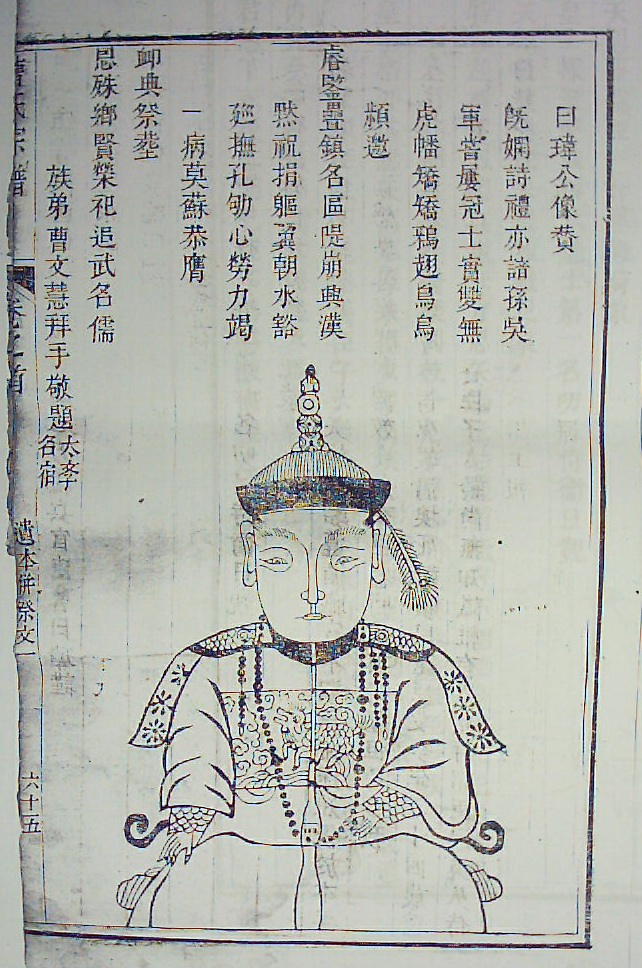 曰瑋公像賛
旣嫻詩禮亦諳孫吳
軍營屢冠士實雙無
虎幡矯矯鵶翅烏烏
頻邀
睿鑒畳鎮名區隄崩興漢
黙祝捐軀翼朝水豁
廵撫孔劬心勞力竭
一病莫蘇恭膺
卹典祭塟
恩殊鄉賢榮祀追武名儒
族弟曹文慧拜手敬題
太學
名宿
宗譜
卷之首
遺本併祭文
六十五